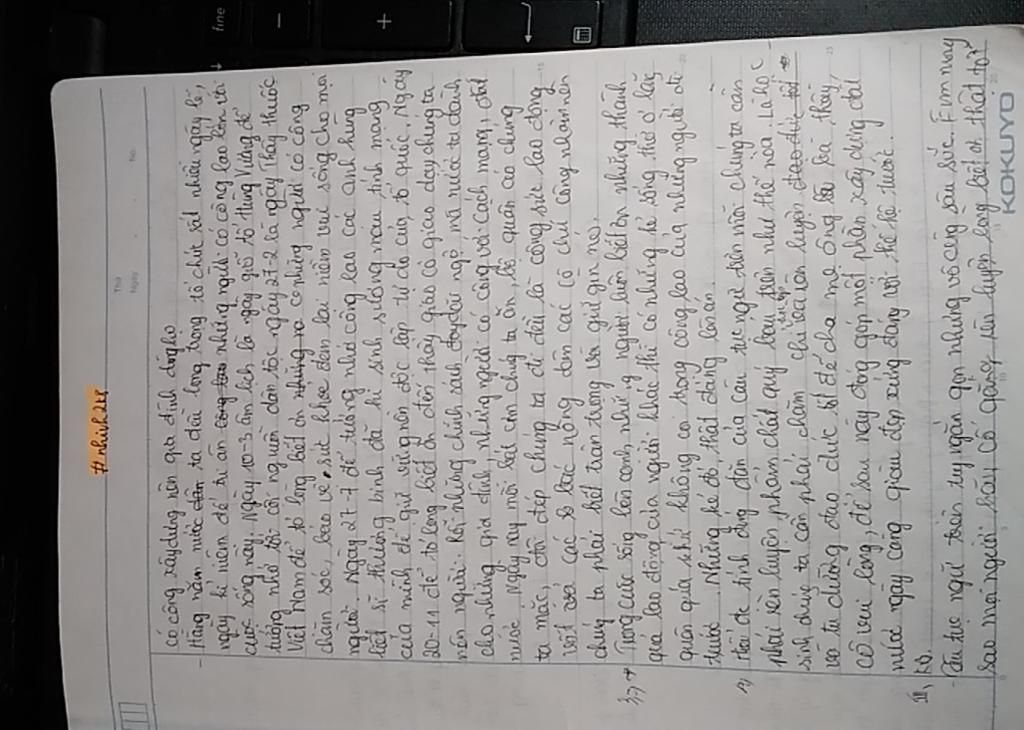 #nhinh2kp
Thứ
Ngày
No.
có công xây dựng nên gia đình dòng họ
- Hằng năm nước ta đều long trọng tổ chức rất nhiều ngày lễ,
ngày kỉ niệm để tri ân những người có công lao lớn với
cuộc sống này. Ngày 10-3 âm lịch là ngày giỗ tổ Hùng Vương để
tưởng nhớ tới cội nguồn dân tộc, ngày 27-2 là ngày Thầy thuốc
Việt Nam để tỏ lòng biết ơn những người có công
chăm sóc, bảo vệ sức khoẻ đem lại niềm vui sống cho mọi
người. Ngày 27-7 để tưởng nhớ công lao các anh hùng
liệt sĩ thương binh đã hi sinh xương máu, tính mạng
của mình để giữ vững nền độc lập tự do của tổ quốc. Ngày
20-11 để tỏ lòng biết ơn đến thầy giáo cô giáo dạy chúng ta
nên người. Rồi những chính sách đãi ngộ mà nước ta dành
cho những gia đình, những người có công với Cách mạng, đất
nước. Ngày nay mỗi bát cơm chúng ta ăn, bộ quần áo chúng
ta mặc, chữ đẹp chúng ta đi đều là công sức lao động
vất vả các bác nông dân các cô chú công nhân nên
chúng ta phải biết trân trọng và giữ gìn nó.
3, + Trong cuộc sống bên cạnh những người luôn biết ơn những thành
quả lao động của người khác thì có những kẻ sống thờ ơ lãng
quên quá khứ không coi trọng công lao của những người đi
trước. Những kẻ đó thật đáng lên án.
4, Thấy được tính đúng đắn của câu tục ngữ trên mỗi chúng ta cần
phải rèn luyện phẩm chất quý báu trên như thế nào. Là học
sinh chúng ta cần phải chăm chỉ rèn luyện
và tu dưỡng đạo đức tốt để cha mẹ, ông bà, thầy
cô vui lòng, để sau này đóng góp một phần xây dựng đất
nước ngày càng giàu đẹp xứng đáng với thế hệ trước.
III, KB.
- Câu tục ngữ trên tuy ngắn gọn nhưng vô cùng sâu sắc. Em mong
sao mọi người hãy cố gắng rèn luyện lòng biết ơn thật tốt
KOKUYO